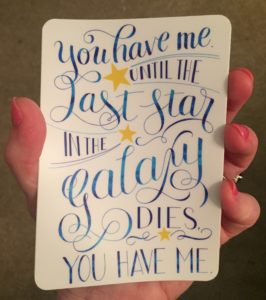 You have me.
UNTIL THE
Last star
IN THE
galaxy
DIES,
YOU HAVE ME.